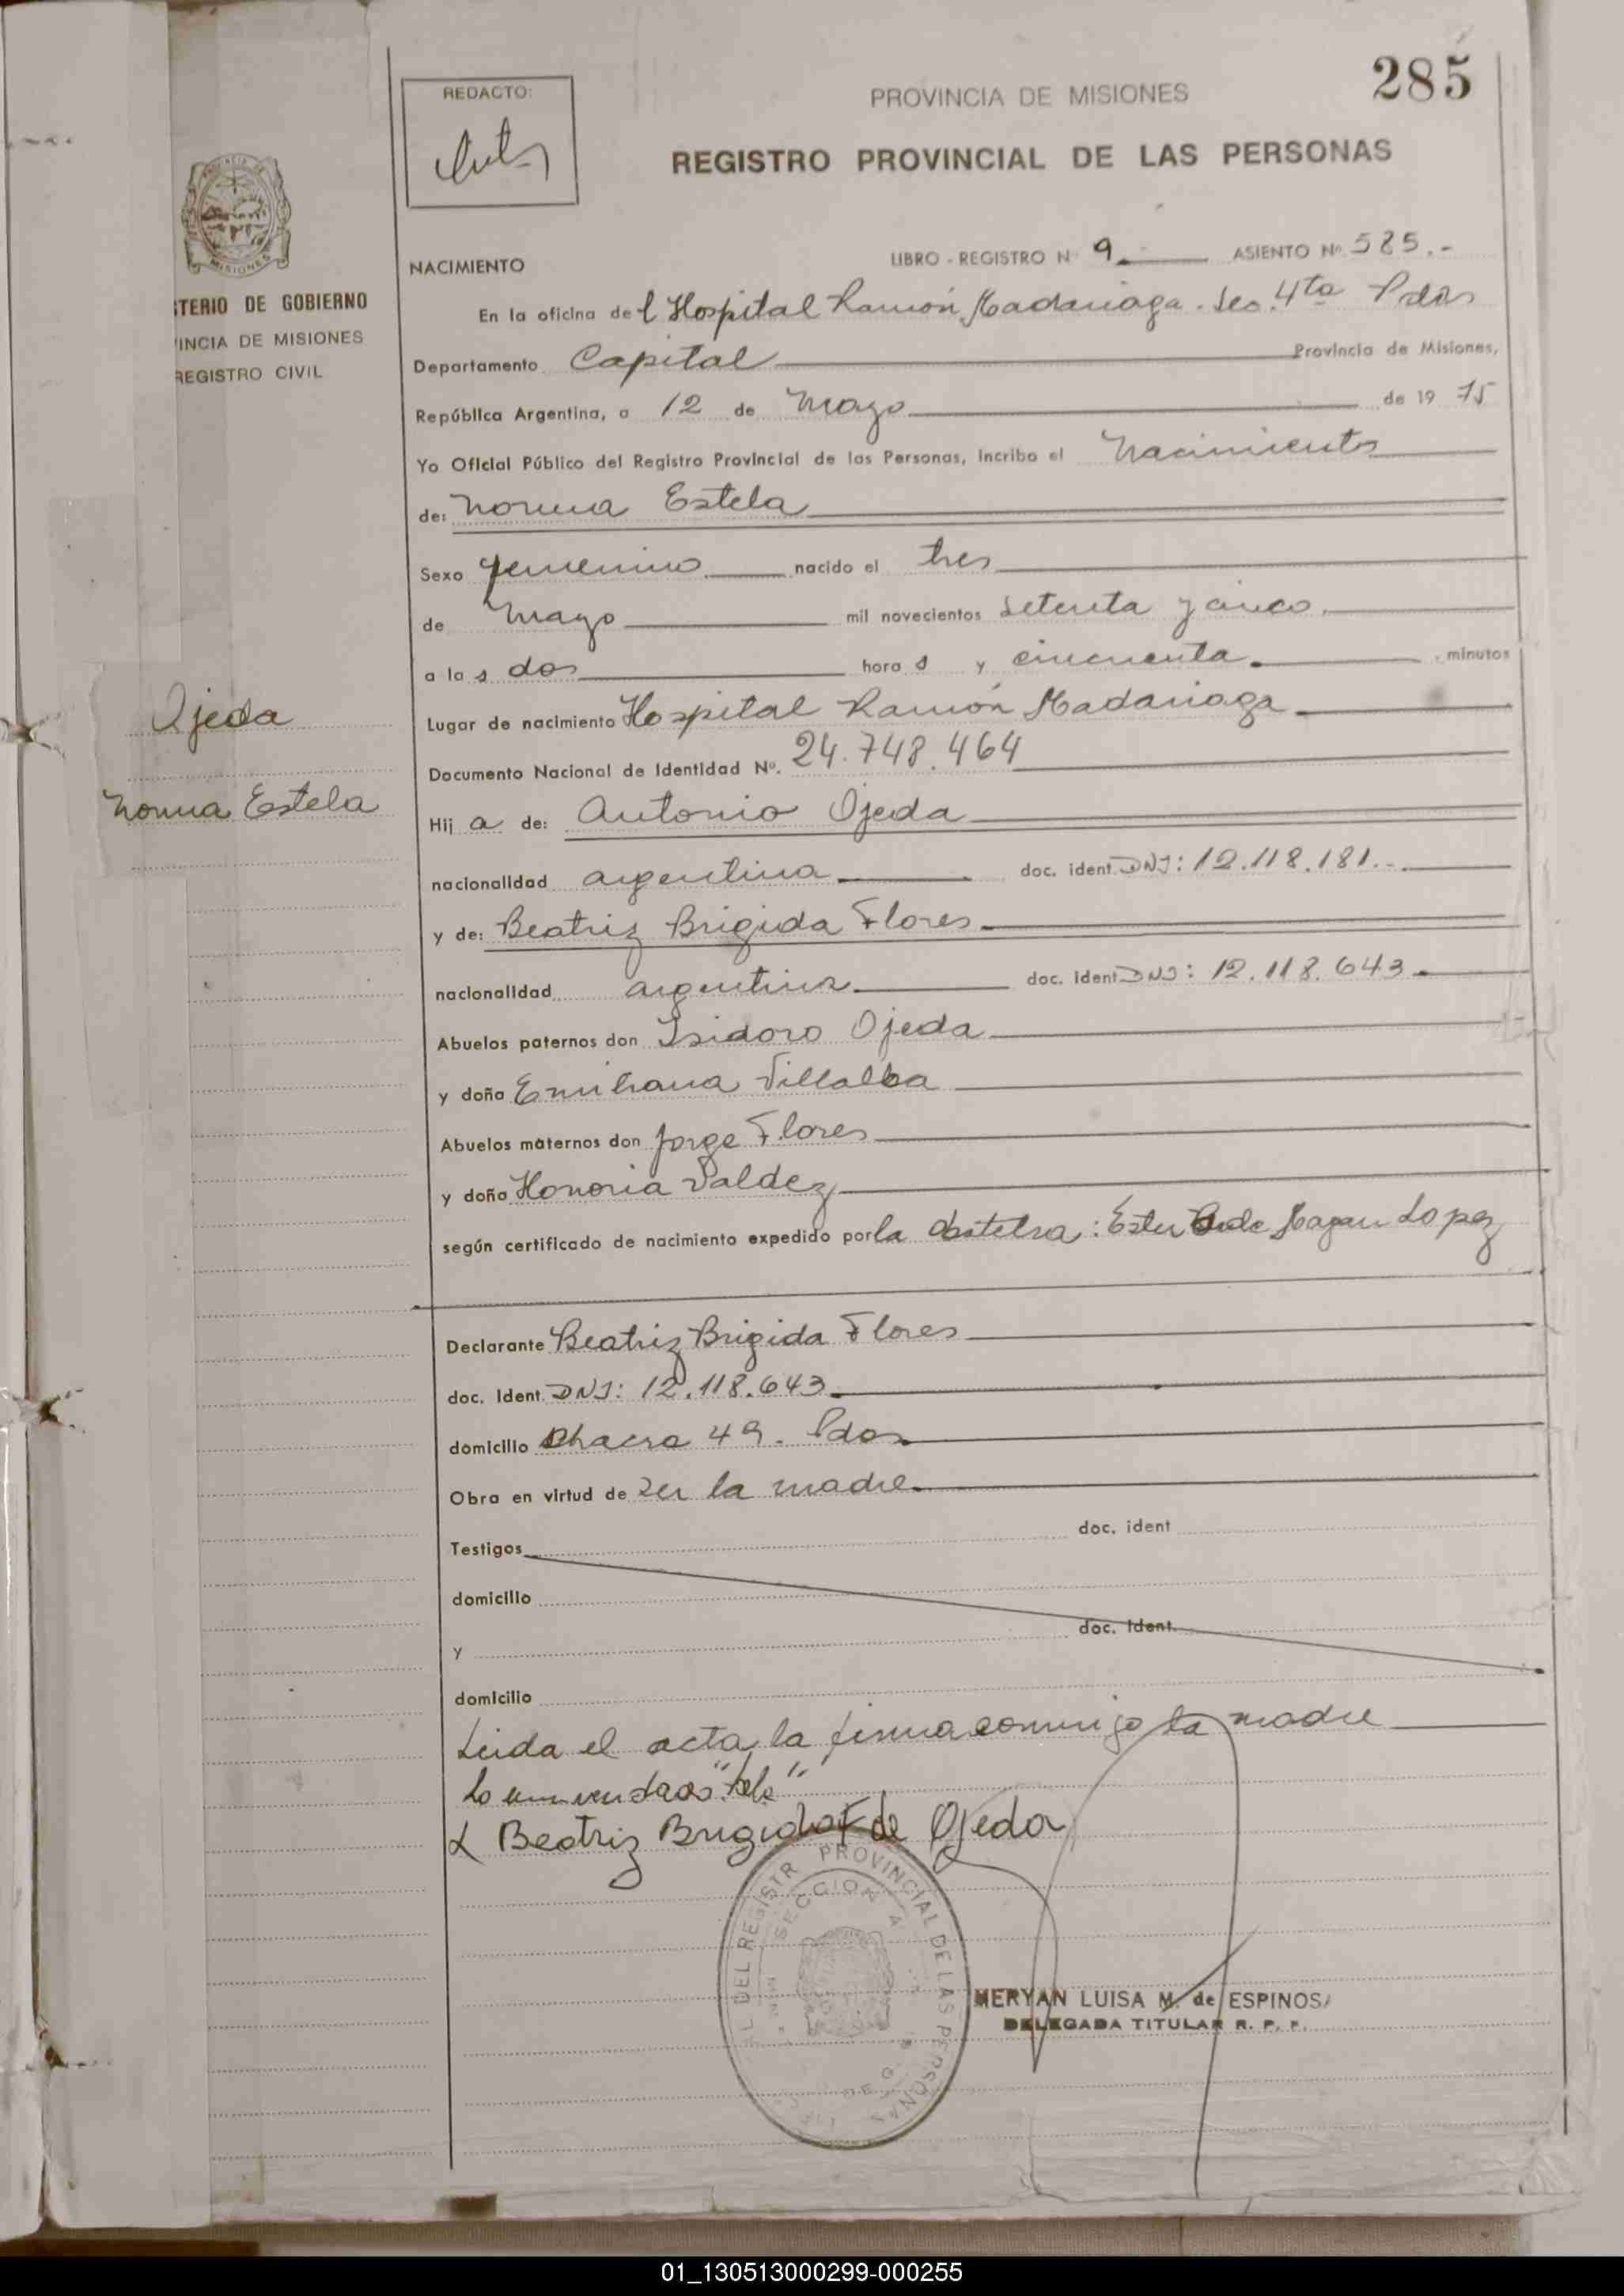 285
REDACTO:
PROVINCIA DE MISIONES
REGISTRO PROVINCIAL DE LAS PERSONAS
MISIONES
STERIO DE GOBIERNO
VINCIA DE MISIONES
REGISTRO CIVIL
NACIMIENTO LIBRO - REGISTRO Nº 9 ASIENTO Nº 585.-
En la oficina del Hospital Ramón Madariaga. Sec. 4ta Pdas
Departamento Capital Provincia de Misiones,
República Argentina, a 12 de Mayo de 19 75
Yo Oficial Público del Registro Provincial de las Personas, incribo el Nacimiento
de: Norma Estela
Sexo femenino nacido el tres
de Mayo mil novecientos setenta y cinco.
a la s dos hora s y cincuenta minutos
Ojeda
Lugar de nacimiento Hospital Ramón Madariaga
Documento Nacional de Identidad Nº. 24.748.464
Norma Estela
Hij a de: Antonio Ojeda
nacionalidad argentina doc. ident DNI: 12.118.181.-
y de: Beatriz Brigida Flores
nacionalidad argentina doc. ident DNI: 12.118.643
Abuelos paternos don Isidoro Ojeda
y doña Emiliana Villalba
Abuelos maternos don Jorge Flores
y doña Honoria Valdez
según certificado de nacimiento expedido por la obstetra: Ester Lopez
Declarante Beatriz Brigida Flores
doc. Ident. DNI: 12.118.643
domicilio Chacra 49. Pdas
Obra en virtud de ser la madre
Testigos doc. ident
domicilio
y doc. Ident.
domicilio
Leida el acta, la firma conmigo la madre
Lo enmendado
Beatriz Brigida F de Ojeda
DEL REGISTR PROVINCIAL DE LAS PERSONAS
SECCION
MERYAN LUISA M. de ESPINOS
DELEGADA TITULAR R. P. P.
01_130513000299-000255